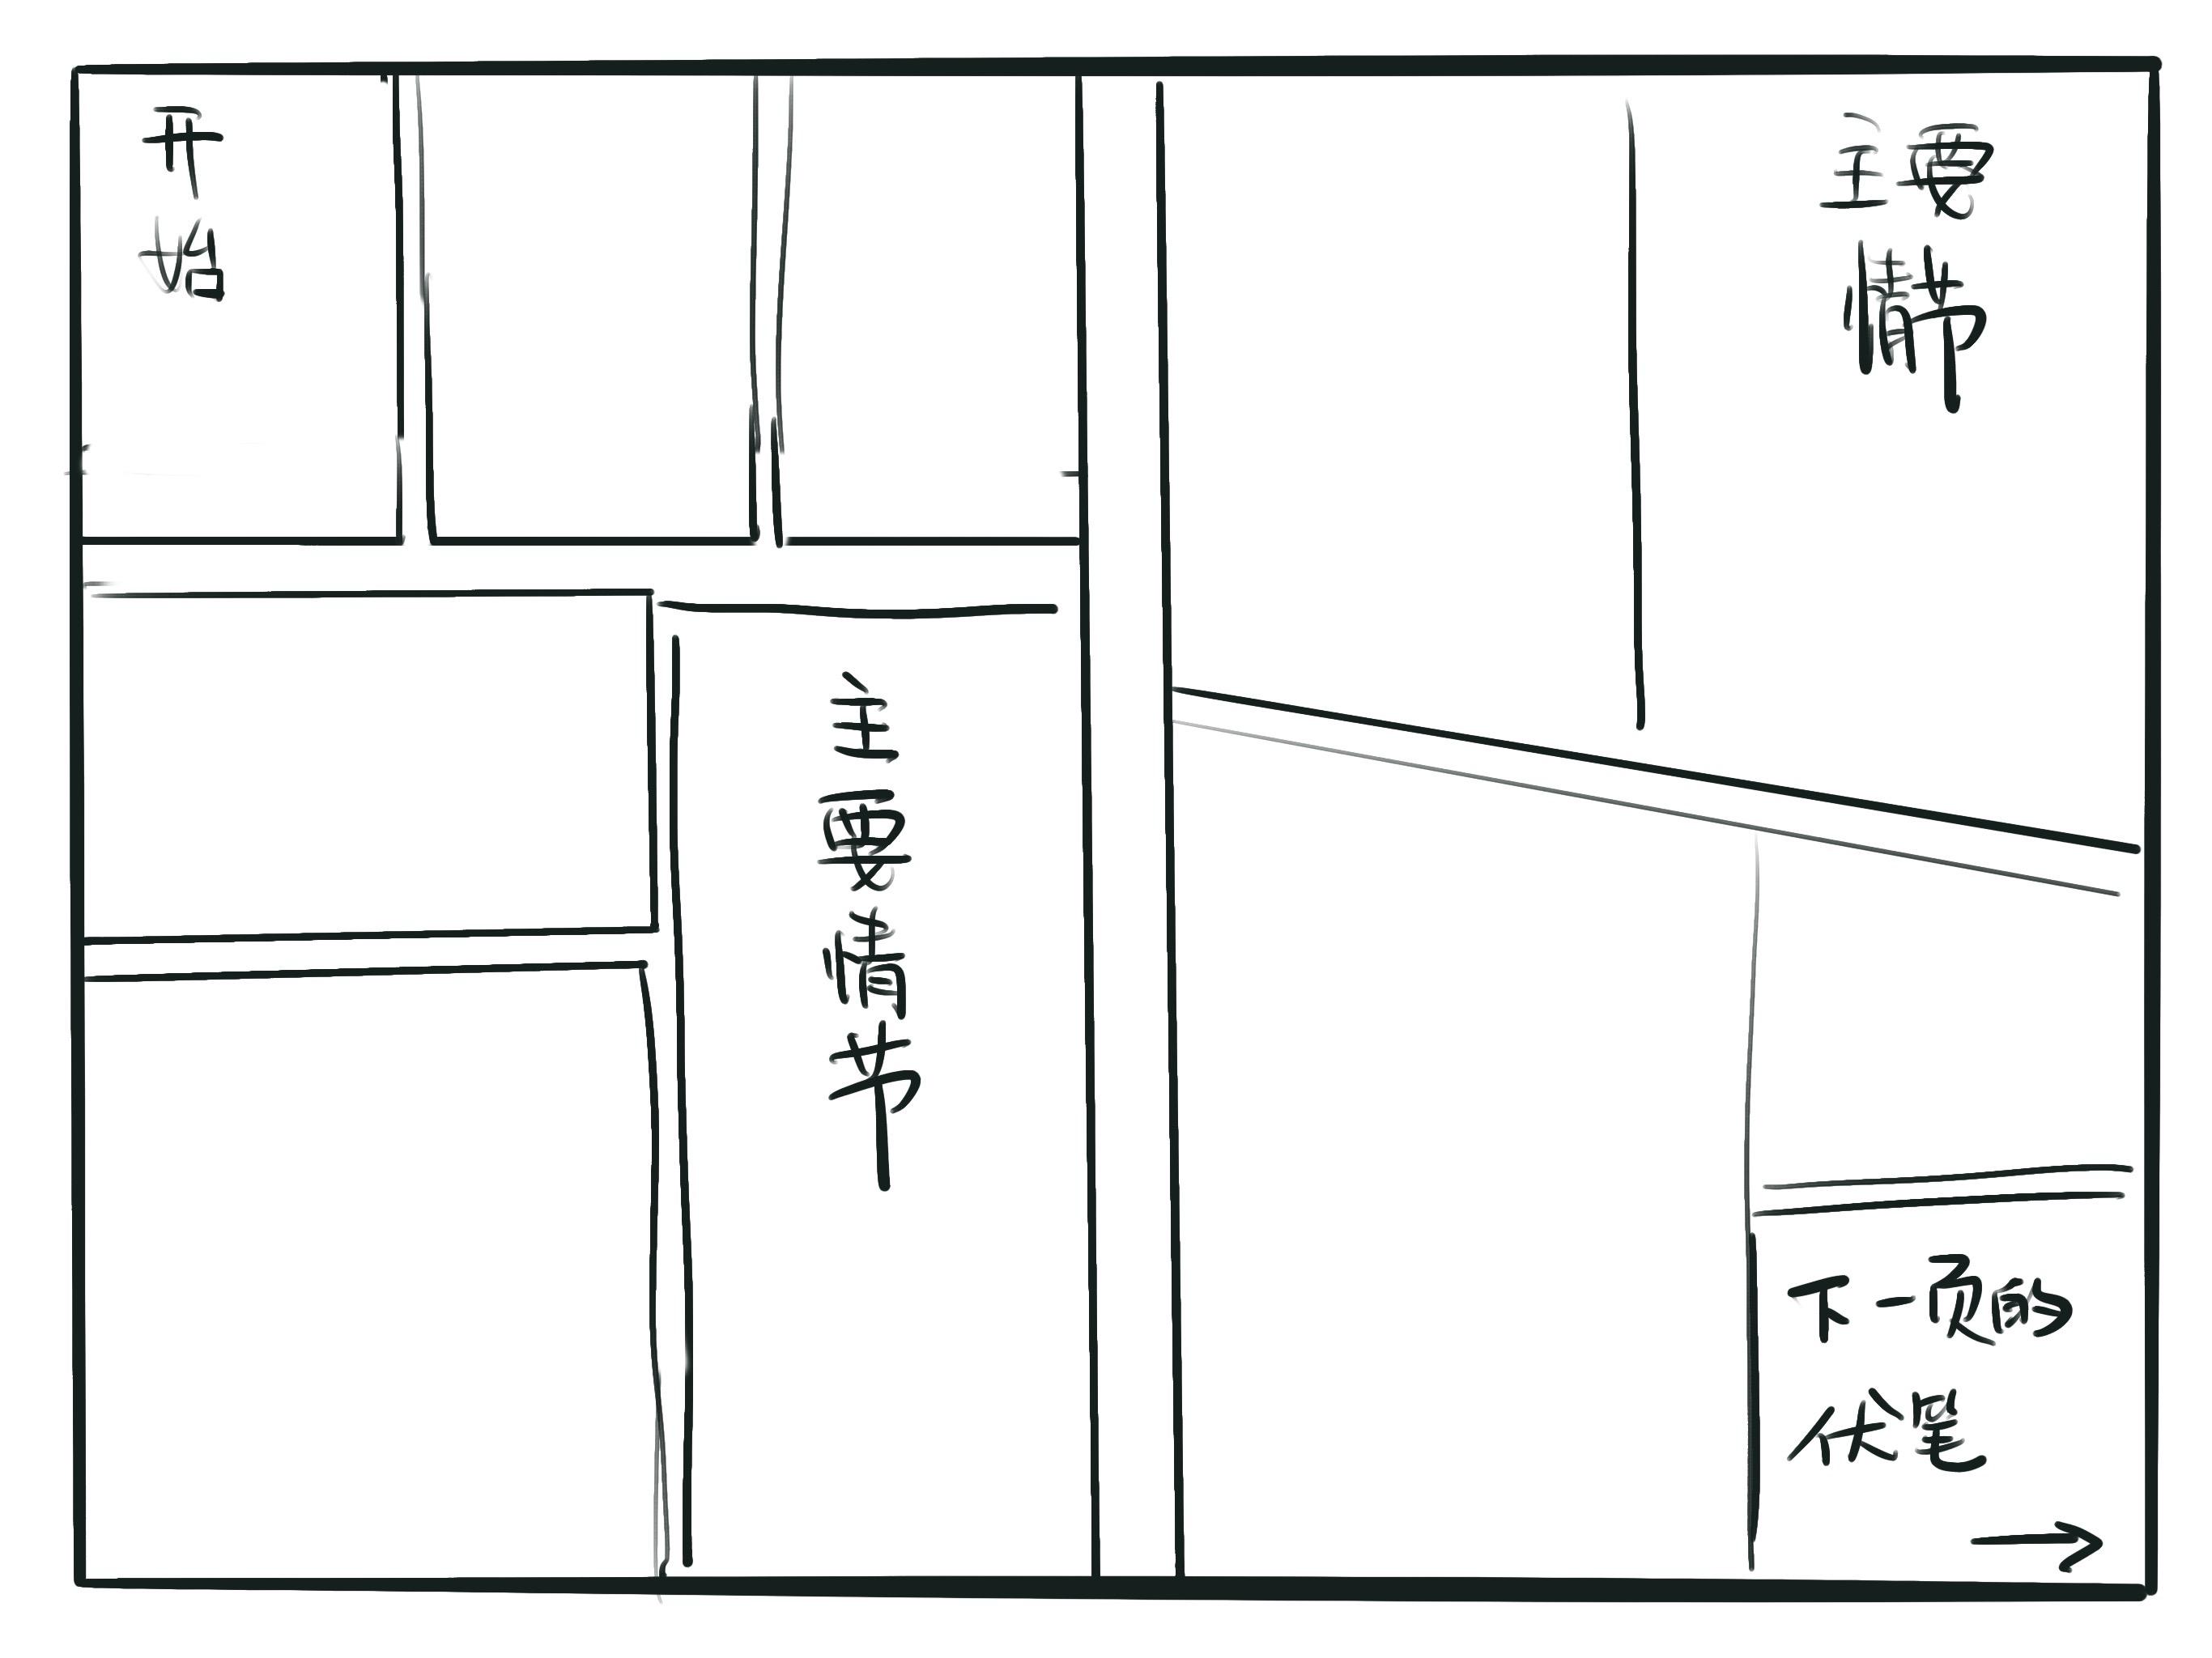 开始
主要情节
主要
情节
下一页的
伏笔